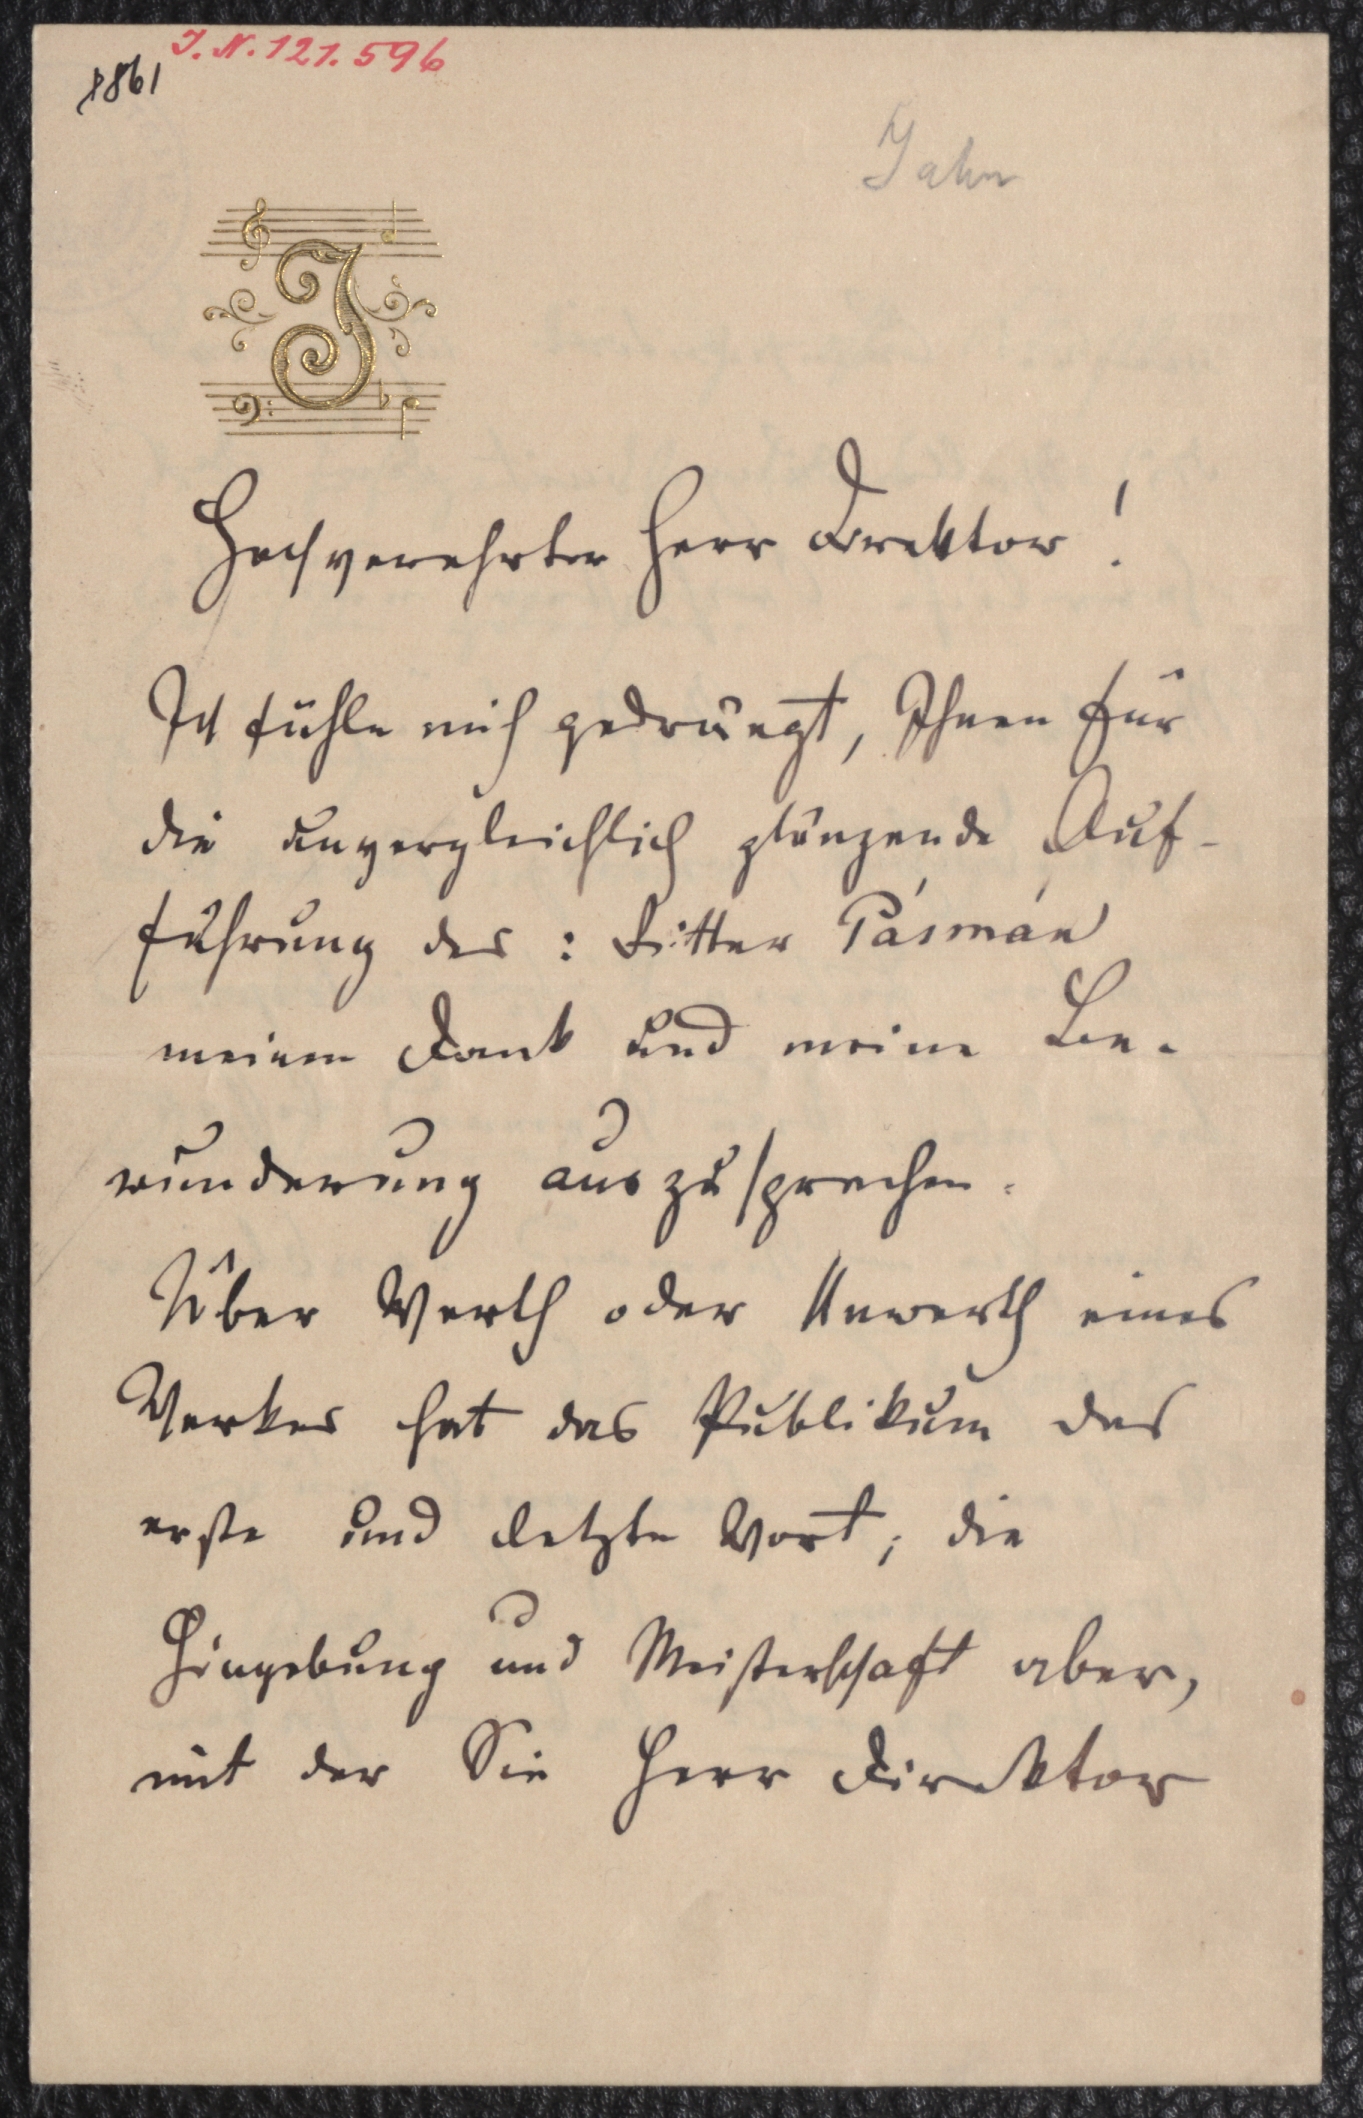 J. N. 121.596
1861
Jahn
J
Hochverehrter Herr Direktor!
Ich fühle mich gedrängt, Ihnen für
die unvergleichlich glänzende Auf-
führung des: Ritter Pásmán
meinen Dank und meine Be-
wunderung auszusprechen.
Über Werth oder Unwerth eines
Werkes hat das Publikum das
erste und letzte Wort; die
Hingebung und Meisterschaft aber,
mit der Sie Herr Direktor